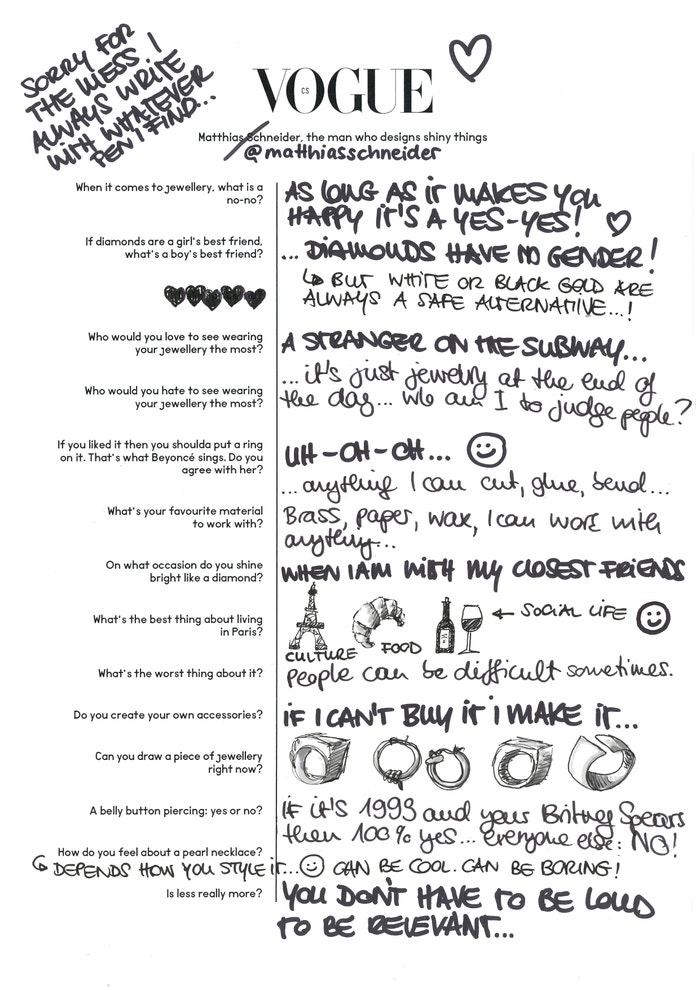 SORRY FOR
THE MESS I
ALWAYS WRITE
WITH WHATEVER
PEN I FIND...
VOGUE
CS
Matthias Schneider, the man who designs shiny things
@matthiasschneider
When it comes to jewellery, what is a
no-no?
AS LONG AS IT MAKES YOU
HAPPY IT'S A YES-YES!
If diamonds are a girl's best friend,
what's a boy's best friend?
... DIAMONDS HAVE NO GENDER!
BUT WHITE OR BLACK GOLD ARE
ALWAYS A SAFE ALTERNATIVE...!
Who would you love to see wearing
your jewellery the most?
A STRANGER ON THE SUBWAY...
Who would you hate to see wearing
your jewellery the most?
... it's just jewelry at the end of
the day... who am I to judge people?
If you liked it then you shoulda put a ring
on it. That's what Beyoncé sings. Do you
agree with her?
UH-OH-OH...
... anything I can cut, glue, bend...
What's your favourite material
to work with?
Brass, paper, wax, I can work with
anything...
On what occasion do you shine
bright like a diamond?
WHEN I AM WITH MY CLOSEST FRIENDS
What's the best thing about living
in Paris?
CULTURE FOOD ← SOCIAL LIFE
What's the worst thing about it?
People can be difficult sometimes.
Do you create your own accessories?
IF I CAN'T BUY IT I MAKE IT...
Can you draw a piece of jewellery
right now?
A belly button piercing: yes or no?
If it's 1999 and your Britney Spears
then 100% yes... everyone else: NO!
How do you feel about a pearl necklace?
DEPENDS HOW YOU STYLE IT... CAN BE COOL. CAN BE BORING!
Is less really more?
YOU DON'T HAVE TO BE LOUD
TO BE RELEVANT...